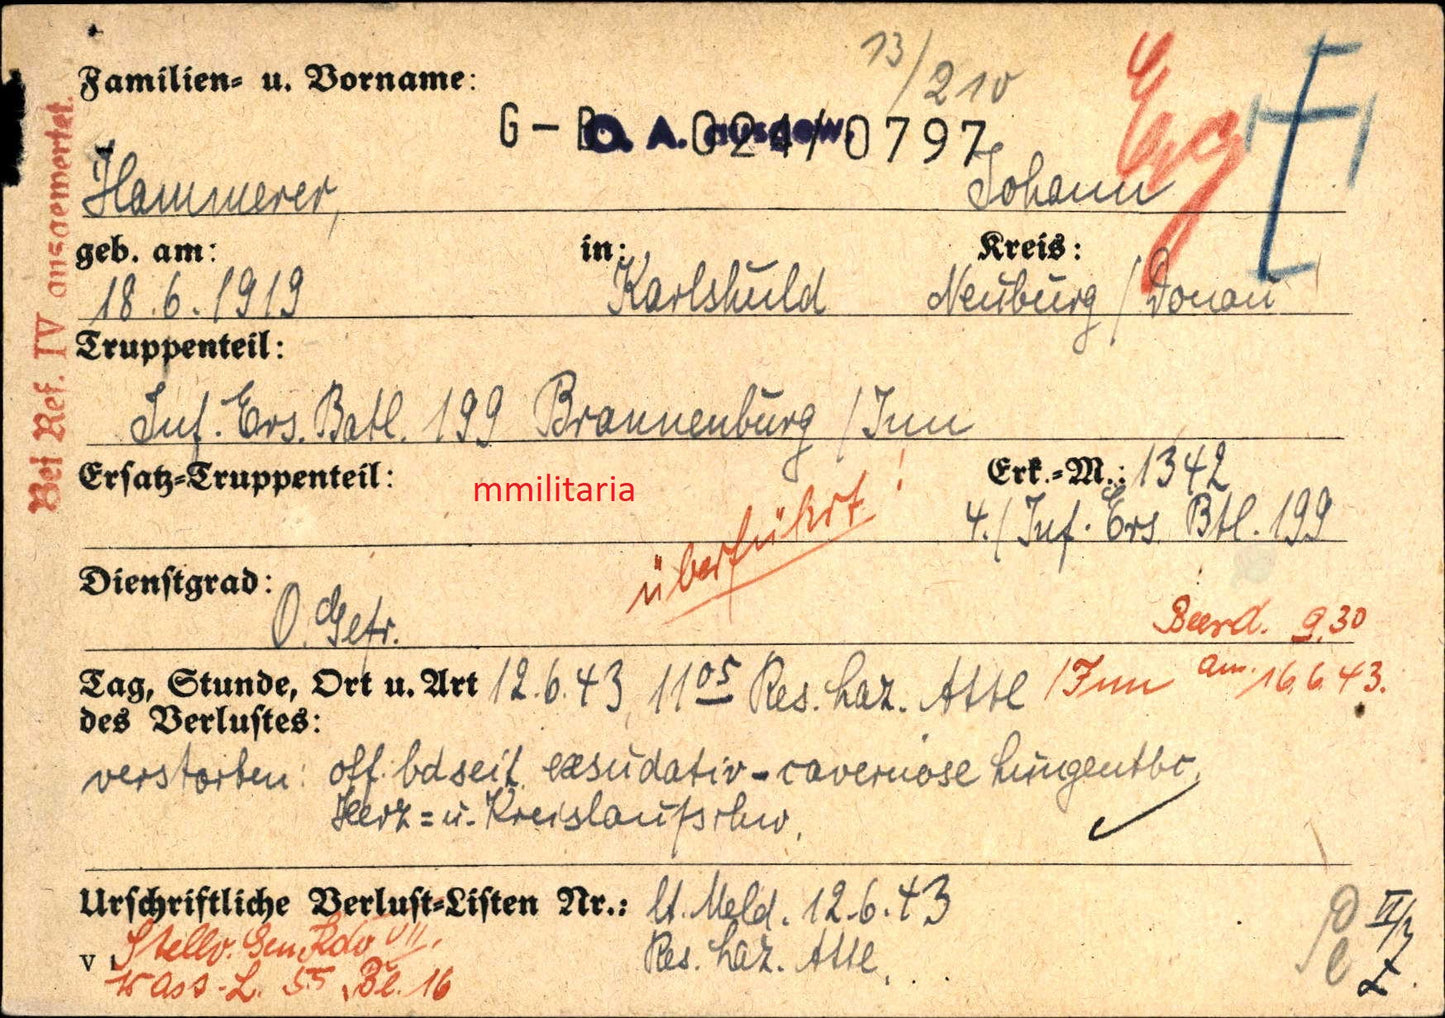 13/210
Familien- u. Vorname:
G-B 024/0797
D. A. ausgew.
Hammerer, Johann
geb. am: in: Kreis:
18.6.1919 Karlshuld Neuburg / Donau
Truppenteil:
Inf. Ers. Batl. 199 Brannenburg / Inn
Ersatz-Truppenteil: Erk.-M.: 1342
mmilitaria
4./ Inf. Ers. Btl. 199
überführt!
Dienstgrad:
O. Gefr.
Beerd. 9.30
am 16.6.43.
Tag, Stunde, Ort u. Art 12.6.43 11 05 Res. Laz. Attl /Inn
des Verlustes:
verstorben: off. bdseit. exsudativ-cavernöse Lungentbc,
Herz= u. Kreislaufschw.
Urschriftliche Verlust-Listen Nr.: lt. Meld. 12.6.43
Res. Laz. Attl.
v. Stellv. Gen Kdo VII.
Wass-L. 55, Bl. 16
Bei Ref. IV ausgewertet.